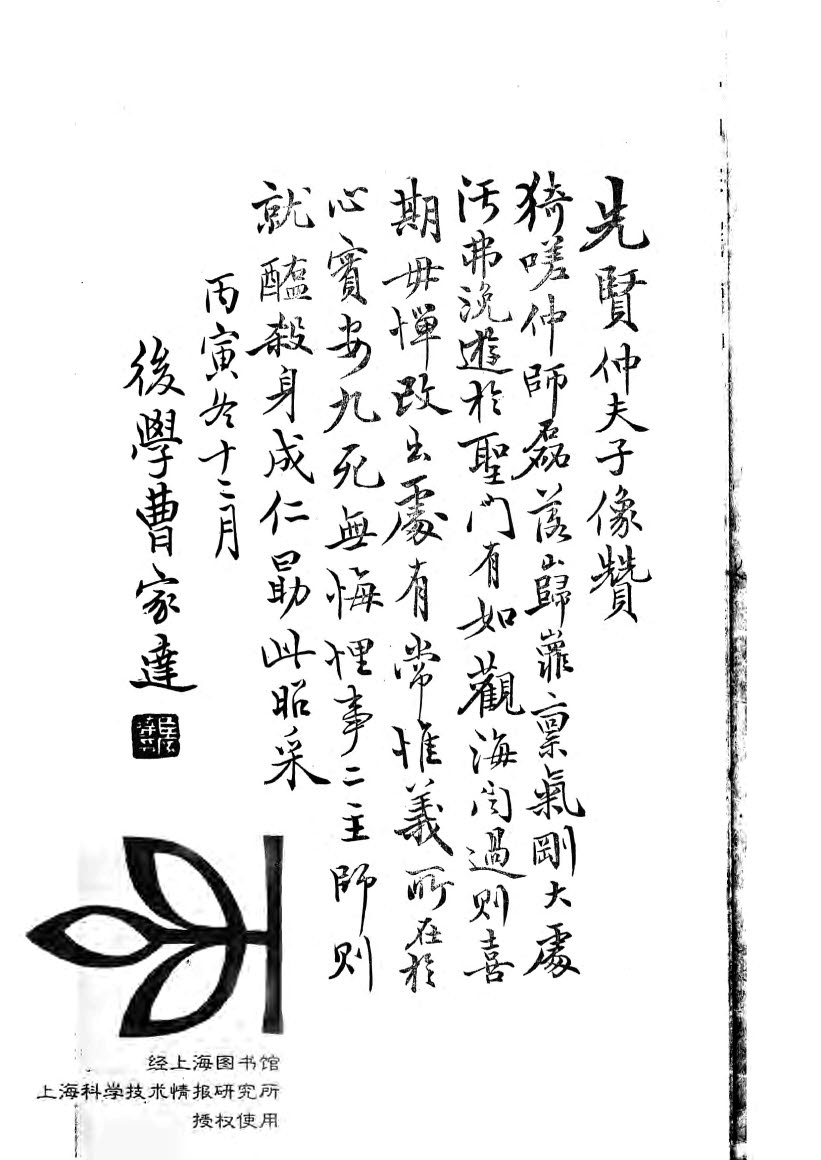 先賢仲夫子像贊
猗嗟仲師磊落巋嶵稟氣剛大處
汚弗浼遊於聖門有如觀海聞過則喜
期毋憚改出處有常惟義所在於
心實安九死無悔悝事二主師則
就醢殺身成仁勗此昭采
丙寅冬十二月
後學曹家達
经上海图书馆
上海科学技术情报研究所
授权使用